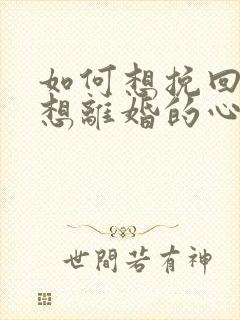 如何想挽回
想離婚的心
世間若有神